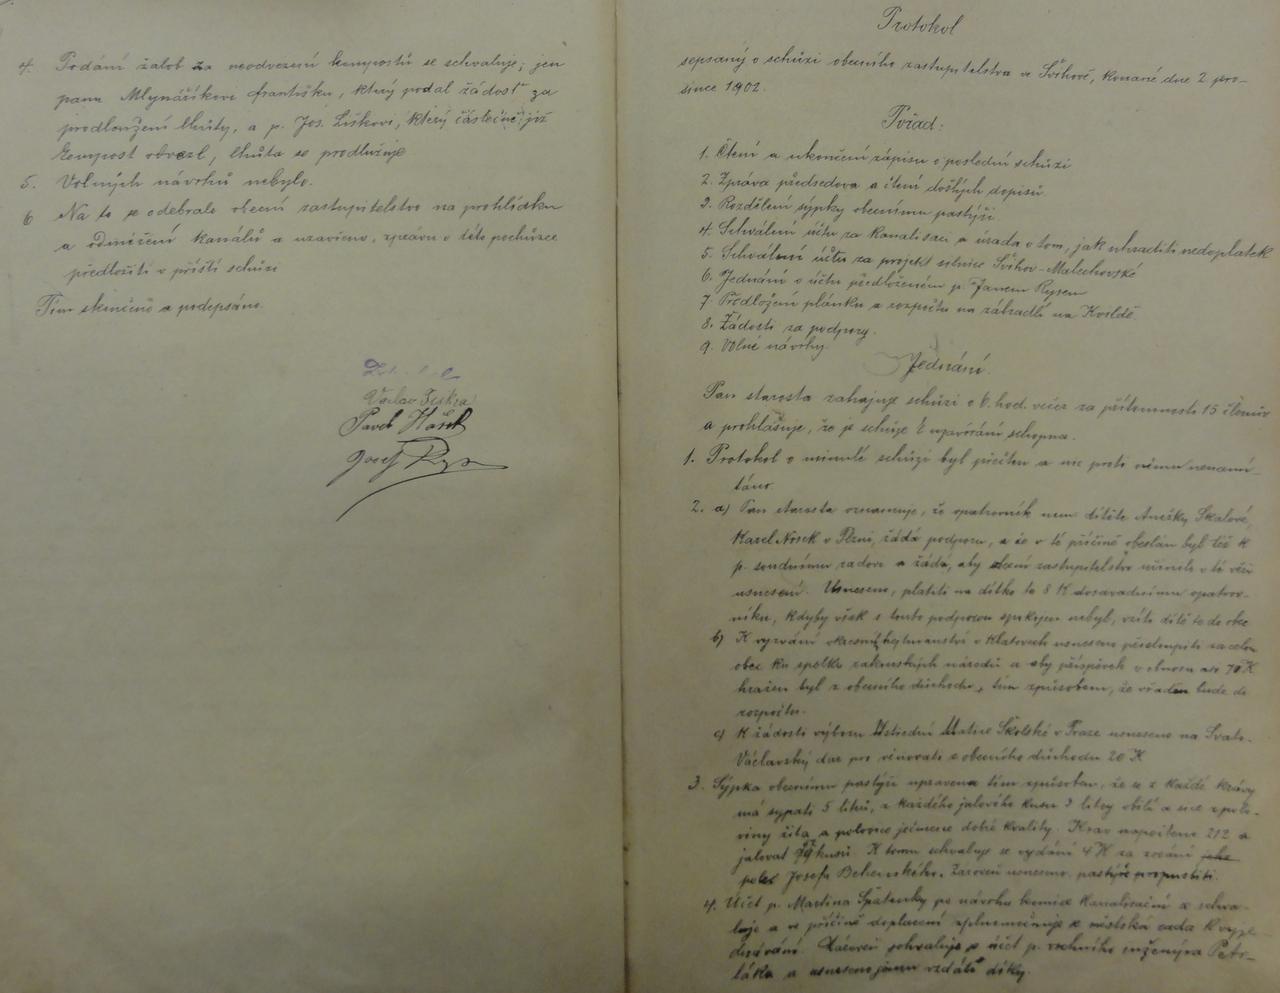 4. Podání žalob za neodvezení kompostů se schvaluje; jen
panu Mlynáříkovi Františku, který podal žádost za
prodloužení lhůty, a p. Jos. Liškovi, který částečně již
kompost odvezl, lhůta se prodlužuje.
5. Volných návrhů nebylo.
6 Na to se odebralo obecní zastupitelstvo na prohlídku
a kanálů a uzavřeno, zprávu o této pochůzce
předložiti v příští schůzi
Tím skončeno a podepsáno.
Václav
Pavel Hašek
Josef
Protokol
sepsaný o schůzi obecního zastupitelstva ve Švihově, konané dne 2 pro-
since 1902.
Pořad:
1. Čtení a ukončení zápisu o poslední schůzi
2. Zpráva předsedova a čtení došlých dopisů
3. Rozdělení sýpky obecnímu pastýři
4. Schválení účtu za kanalisaci a úrada o tom, jak uhraditi nedoplatek
5. Schválení účtu za projekt silnice Švihov-Malechovské
6. Jednání o účtu předloženém p. Janem Rysem
7 Předložení plánku a rozpočtu na zábradlí na Kvildě.
8. Žádosti za podpory.
9. Volné návrhy.
Jednání.
Pan starosta zahajuje schůzi o 6. hod. večer za přítomnosti 15 členův
a prohlašuje, že je schůze k uzavírání schopna.
1. Protokol o minulé schůzi byl přečten a nic proti němu nenamí-
táno.
2. a) Pan starosta oznamuje, že opatrovník nem. dítěte Anežky Skalové,
Karel Nosek v Plzni, žádá podporu, a že v té příčině obeslán byl též k
p. soudnímu radovi a žádá, aby obecní zastupitelstvo učinilo v té věci
usnesení. Usneseno, platiti na dítko to 8 K dosavadnímu opatrov-
níku, kdyby však s touto podporou spokojen nebyl, vzíti dítě to do obce
b) K vyzvání okresního hejtmanství v Klatovech usneseno přistoupiti za celou
obec ku spolku národů a aby příspěvek v obnosu 70 K
hrazen byl z obecního důchodu, tím způsobem, že vřaděn bude do
rozpočtu.
c) K žádosti výboru Ústřední Matice Školské v Praze usneseno na Svato-
Václavský dar pro věnovati z obecního důchodu 20 K
3. Sýpka obecnímu pastýři upravena tím způsobem, že se z každé krávy
má sypati 5 litrů, z každého jalového kusu 3 litry obilí a sice z polo-
viny žita a polovice ječmene dobré kvality. Krav napočteno 212 a
jalovat kusů. K tomu schvaluje se vydání 4 K za
Josefa Zároveň usneseno pastýře propustiti.
4. Účet p. Martina Špatenky po návrhu komise kanalisační se schva-
luje a ve příčině doplacení zplnomocňuje se městská rada k vyjed-
návání. Zároveň schvaluje se účet p. vrchního inženýra Petr-
láka a usneseno jemu vzdáti díky.